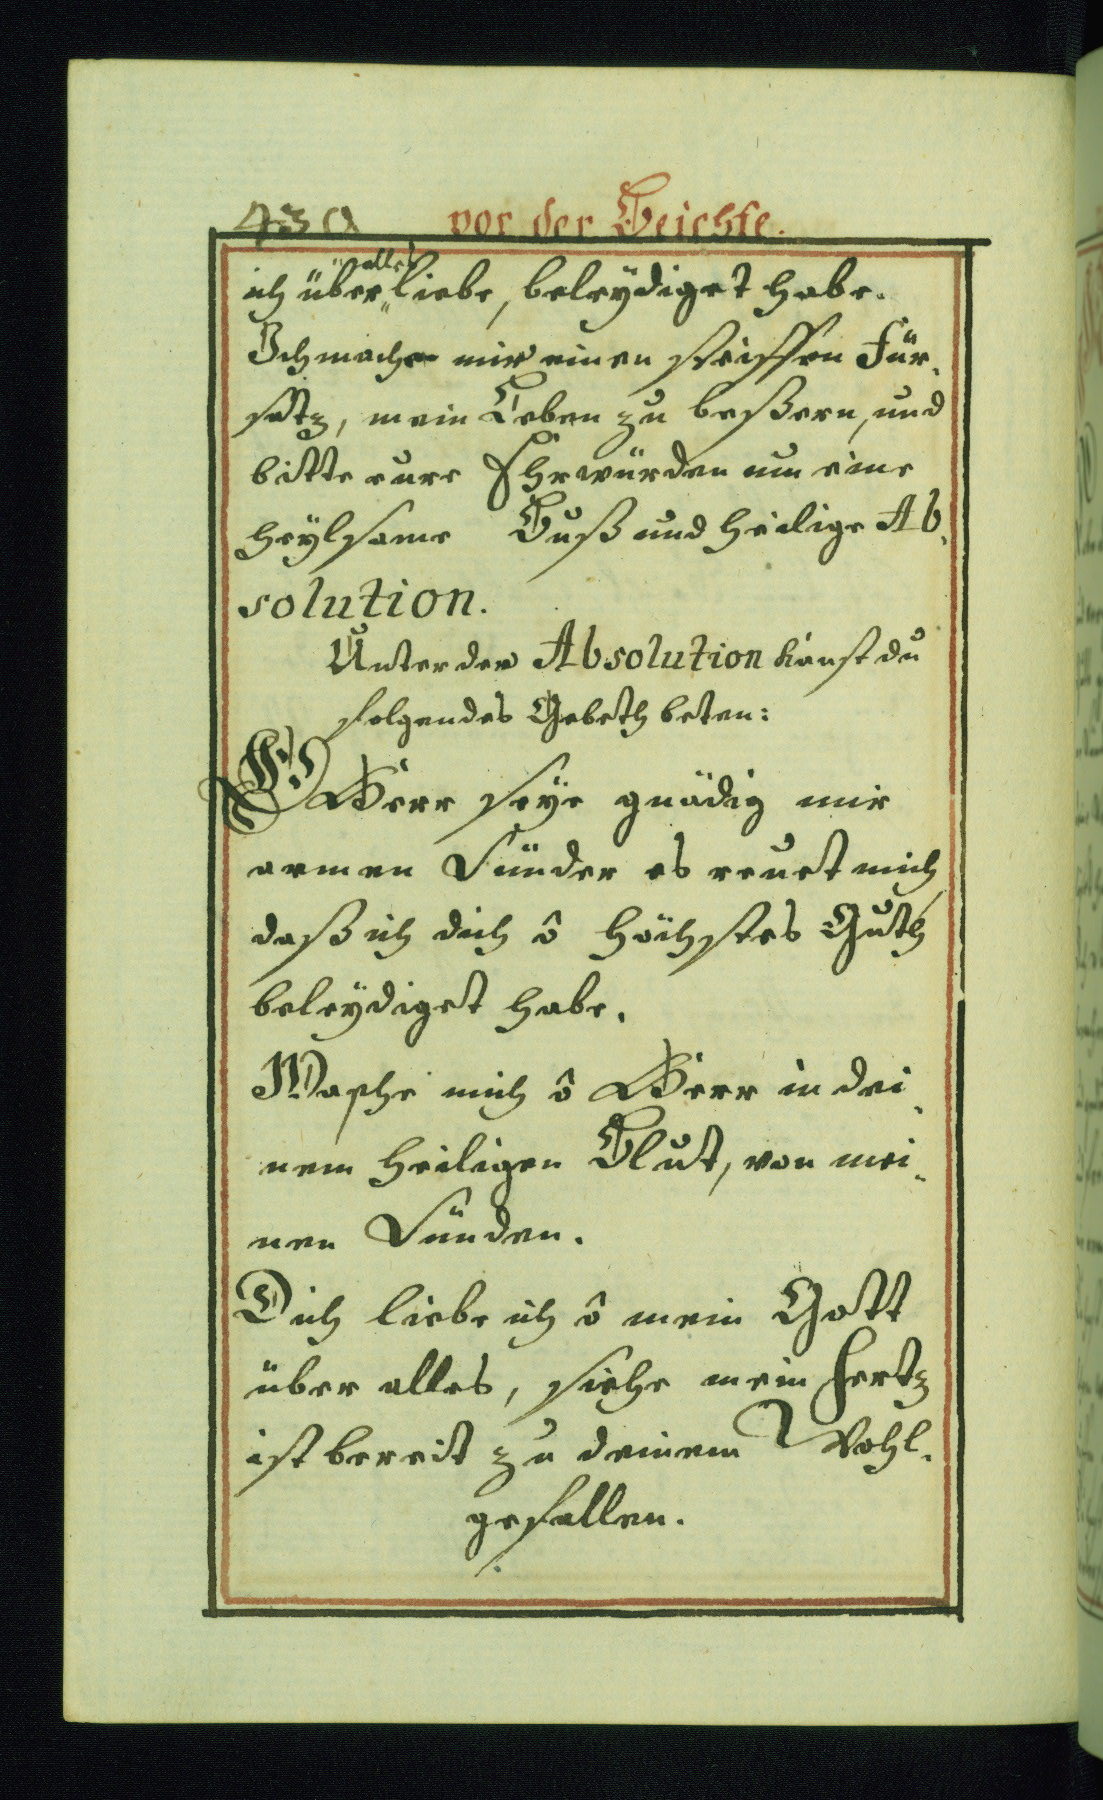 vor der Beichte.
alles
ich über liebe, beleydiget habe.
Ich mache mir einen steiffen Für-
satz, mein Leben zu beßern, und
bitte eure Ehrwürden um eine
heylsame Buß und heilige Ab-
solution.
Unter der Absolution kanst du
folgendes Gebeth beten:
O Herr seye gnädig mir
armen Sünder es reuet mich,
daß ich dich ô höchstes Guth
beleydiget habe.
Wasche mich ô Herr in dei-
nem heiligen Blut, von mei-
nen Sünden.
Dich liebe ich ô mein Gott
über alles, siehe mein Hertz
ist bereit zu deinem Wohl-
gefallen.